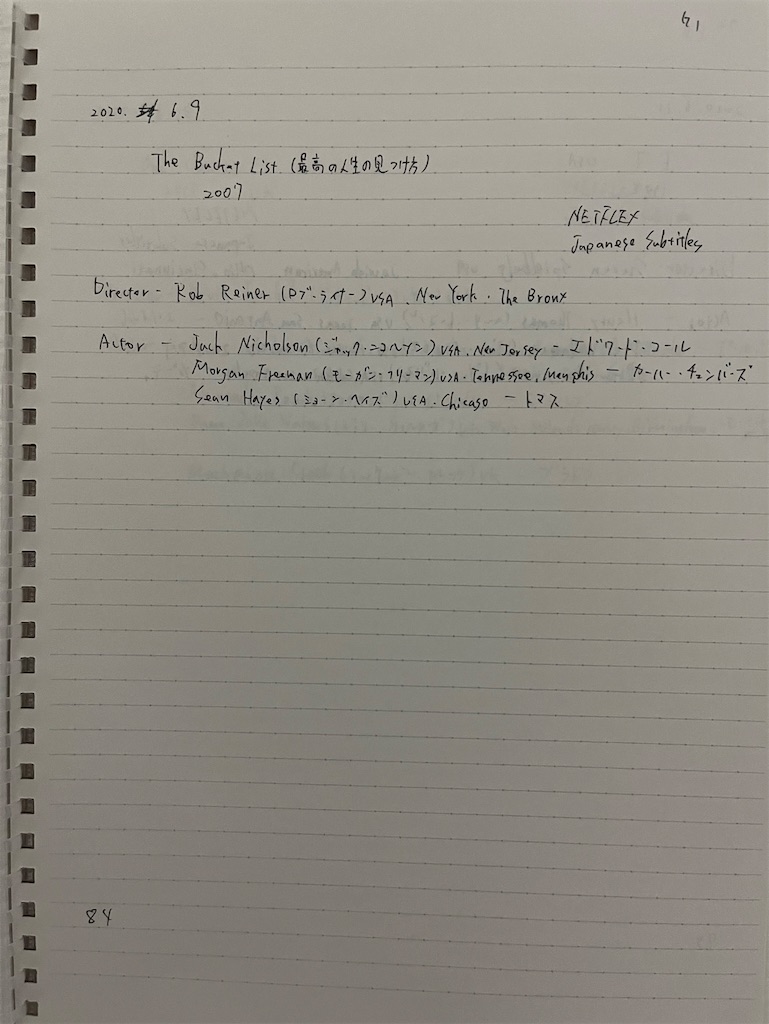 61
2020. 6.9
The Bucket List (最高の人生の見つけ方)
2007
NETFLEX
Japanese Subtitles
Director - Rob Reiner (ロブ・ライナー) USA. New York. The Bronx
Actor - Jack Nicholson (ジャック・ニコルソン) USA. New Jersey - エドワード・コール
Morgan Freeman (モーガン・フリーマン) USA. Tennessee, Memphis - カーター・チェンバーズ
Sean Hayes (ショーン・ヘイズ) USA. Chicago - トマス
84